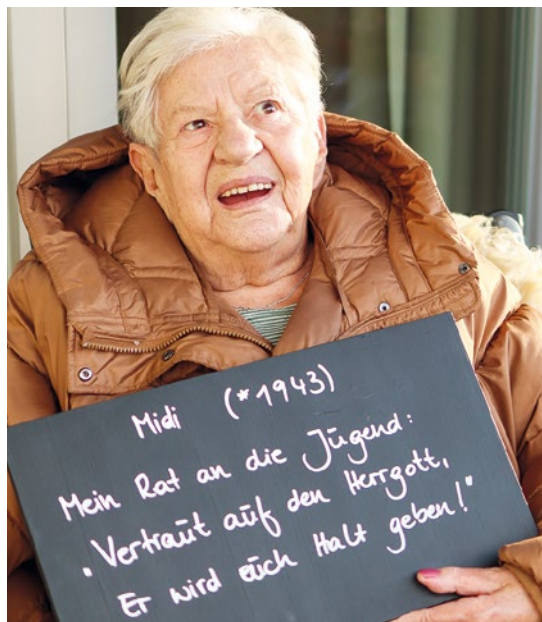 Midi (*1943)
Mein Rat an die Jugend:
"Vertraut auf den Herrgott,
Er wird euch Halt geben!"